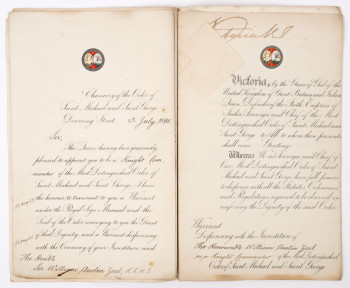 Chancery of the Order of
Saint Michael and Saint George
Downing Street July, 1895
Sir,
The Queen having been graciously
pleased to appoint you to be a Knight Com-
mander of the Most Distinguished Order of
Saint Michael and Saint George, I have
the honour to transmit to you a Warrant
under the Royal Sign Manual and the
Seal of the Order conveying to you the Grant
of that Dignity, and a Warrant dispensing with
the Ceremony of your Investiture and
The Honble
Sir William Austin Zeal, K.C.M.G.
Victoria R I
Victoria, by the Grace of God of the
United Kingdom of Great Britain and Ireland
Queen, Defender of the Faith, Empress of
India, Sovereign and Chief of the Most
Distinguished Order of Saint Michael and
Saint George, To All to whom these presents
shall come Greeting:
Whereas We as Sovereign and Chief of
Our Most Distinguished Order of Saint
Michael and Saint George have full power
to dispense with all the Statutes, Ordinances
and Regulations required to be observed in
conferring the Dignity of the said Order
Warrant
Dispensing with the Investiture of
The Honourable William Austin Zeal
as a Knight Commander of the Most Distinguished
Order of Saint Michael and Saint George